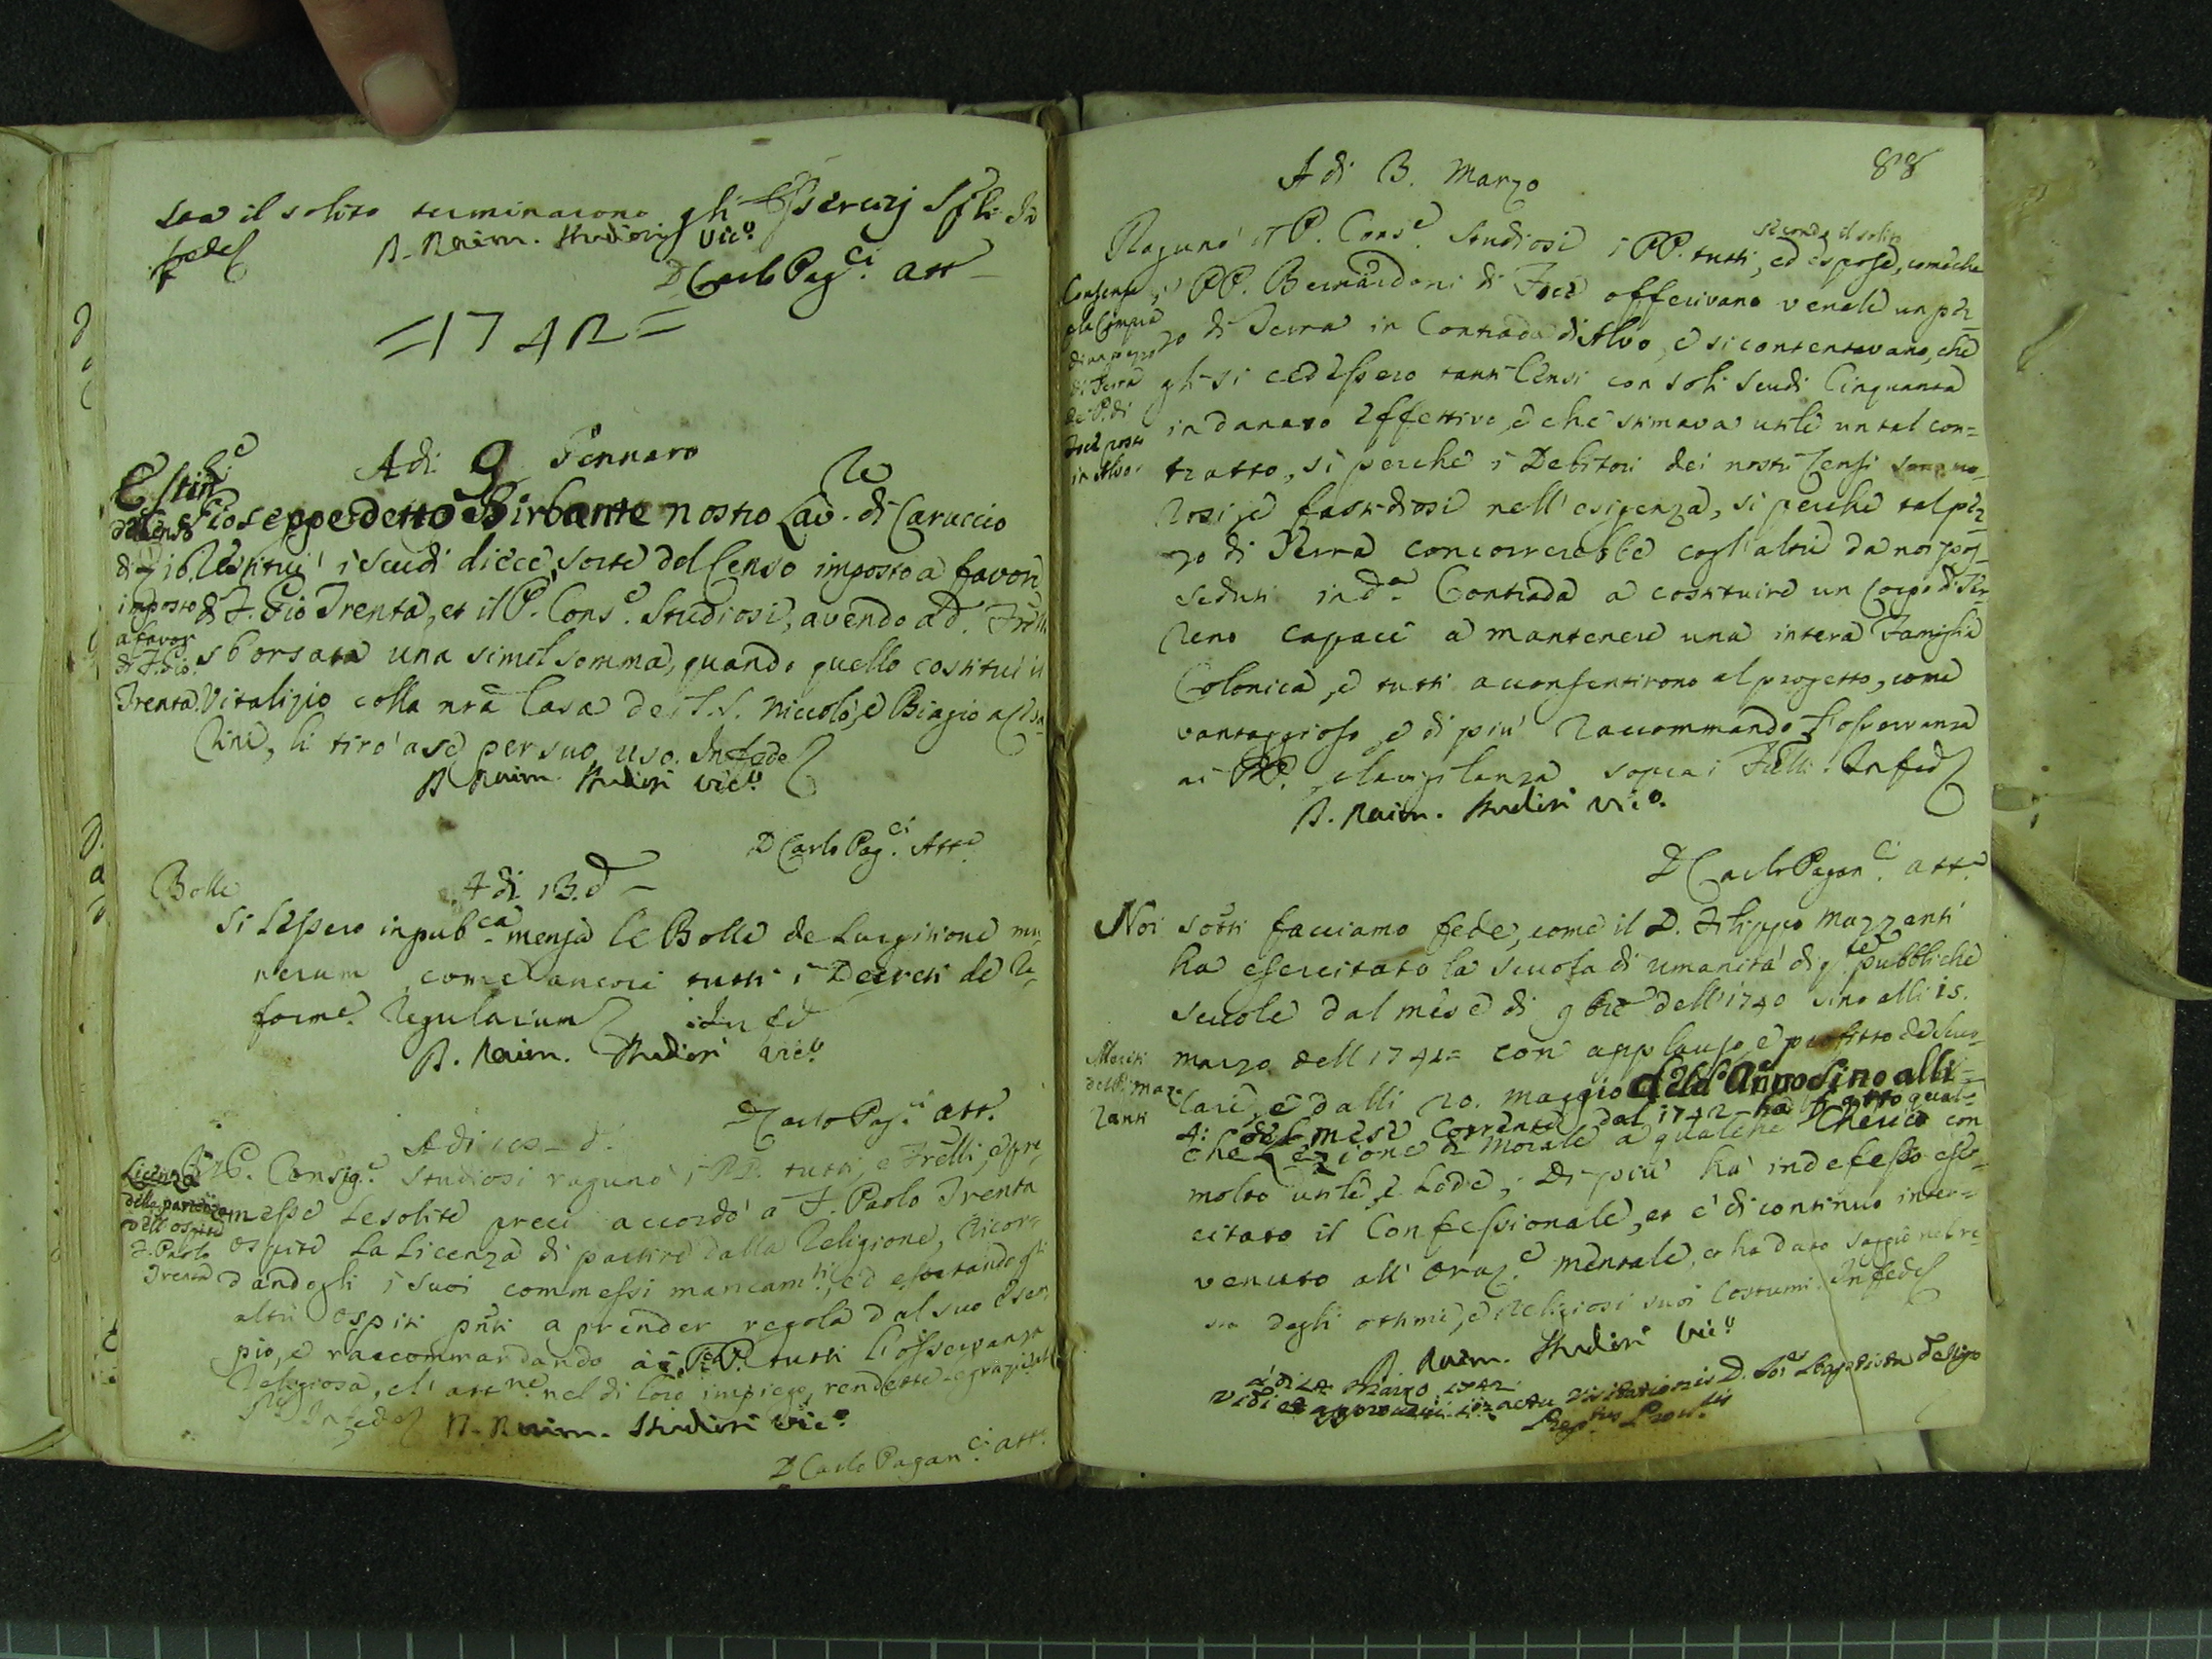 sera il solito terminarono gli Esercizj Spli. In
fede
B. Raim. Studiosi Vic.o
D Carlo Pag.ci Att.
=1742=
Adi 9 Gennaro
Estin.e
del Censo
di 10
imposto
a favor
di F. Gio.
Trenta
Gioseppe detto Birbante nostro Lav.re di Caruccio
restitui i scudi diece, sorte del Censo imposto a favore
di F. Gio Trenta, et il P. Cons.e Studiosi, avendo a d. Frello
sborsata una simil somma, quando quello costitui il
Vitalizio colla nra Casa de SS. Niccolò, e Biagio
li tirò a se per suo uso. In fede
B. Raim. Studiosi Vic.o
D Carlo Pag.ci Att.e
Bolle
Adi 13. d.
Si lessero in pub.ca mensa le Bolle de Largitione mu
nerum, come ancora tutti i Decreti de Re
form.e Regularium In fed
B. Raim. Studiosi Vic.o
D Carlo Pag.ci Att.
Licenza
della partenza
dell'ospite
F. Paolo
Trenta
Il P. Consig.e Studiosi ragunò i PP. tutti, e Frelli, e pre
messe le solite preci accordò a F. Paolo Trenta
ospite la Licenza di partire dalla Religione, ricor=
dandogli i suoi commessi mancam.ti, ed esortando gli
altri ospiti pnti a prender regola dal suo esem
pio, e raccommandando ai PP. tutti l'osservanza
Religiosa, e l'att.ne nel di loro impiego, rendette le grazie
In fede B. Raim. Studiosi Vic.o
D Carlo Pagan.ci att.
88
A di 13. Marzo
Ragunò il P. Cons.e Studiosi i PP. tutti, secondo il solito ed espose, comeche
Consenso
p la Compra
di un pezzo
di Terra
dei P. di
Foce posti
in Alvo.
i PP. Bernardoni di Foce offerivano venale un pez=
zo di Terra in Contrada di Alvo, e si contentavano, che
gli si cedessero tanti Censi con soli scudi Cinquanta
in danaro effettivo, e che stimava utile un tal con=
tratto, si perche i Debitori dei nostri Censi sono mo
rosi, e fastidiosi nell' esigenza, si perche tal pez
zo di Terra concorrerebbe cogl' altri da noi pos
seduti in d.a Contrada a costituire un Corpo di Ter
reno capace a mantenere una intera Famiglia
Colonica, e tutti acconsentirono al progetto, come
vantaggioso, e di piu raccommando l'osservanza
ai PP. e la vigilanza sopra i Frelli. In fede
B. Raim. Studiosi Vic.o
D Carlo Pagan.ci att.e
Meriti
del P. Maz
zanti
Noi sotti facciamo fede, come il D. Filippo Mazzanti
ha esercitato la scuola di umanità di q.te pubbliche
scuole dal mese di 9bre dell' 1740 sino alli 15.
marzo dell 1741= con applauso, e profitto de Scuo
lari, e dalli 20. maggio del d.o Anno sino alli
4: del mese corrente dal 1742 ha fatto qual=
che Lezione di Morale a qualche Cherico con
molto utile, e Lode; Di piu ha indefesso eser
citato il Confessionale, et è di continuo inter=
venuto all' oraz.e mentale, et ha dato saggio nel re
sto degli ottimi, e religiosi suoi Costumi. In fede
B. Raim. Studiosi Vic.o
a di 14 Marzo 1742.
Vidi et approbavi in actu visitationis D. Jo.es Baptista
Prep.tus Prov.lis